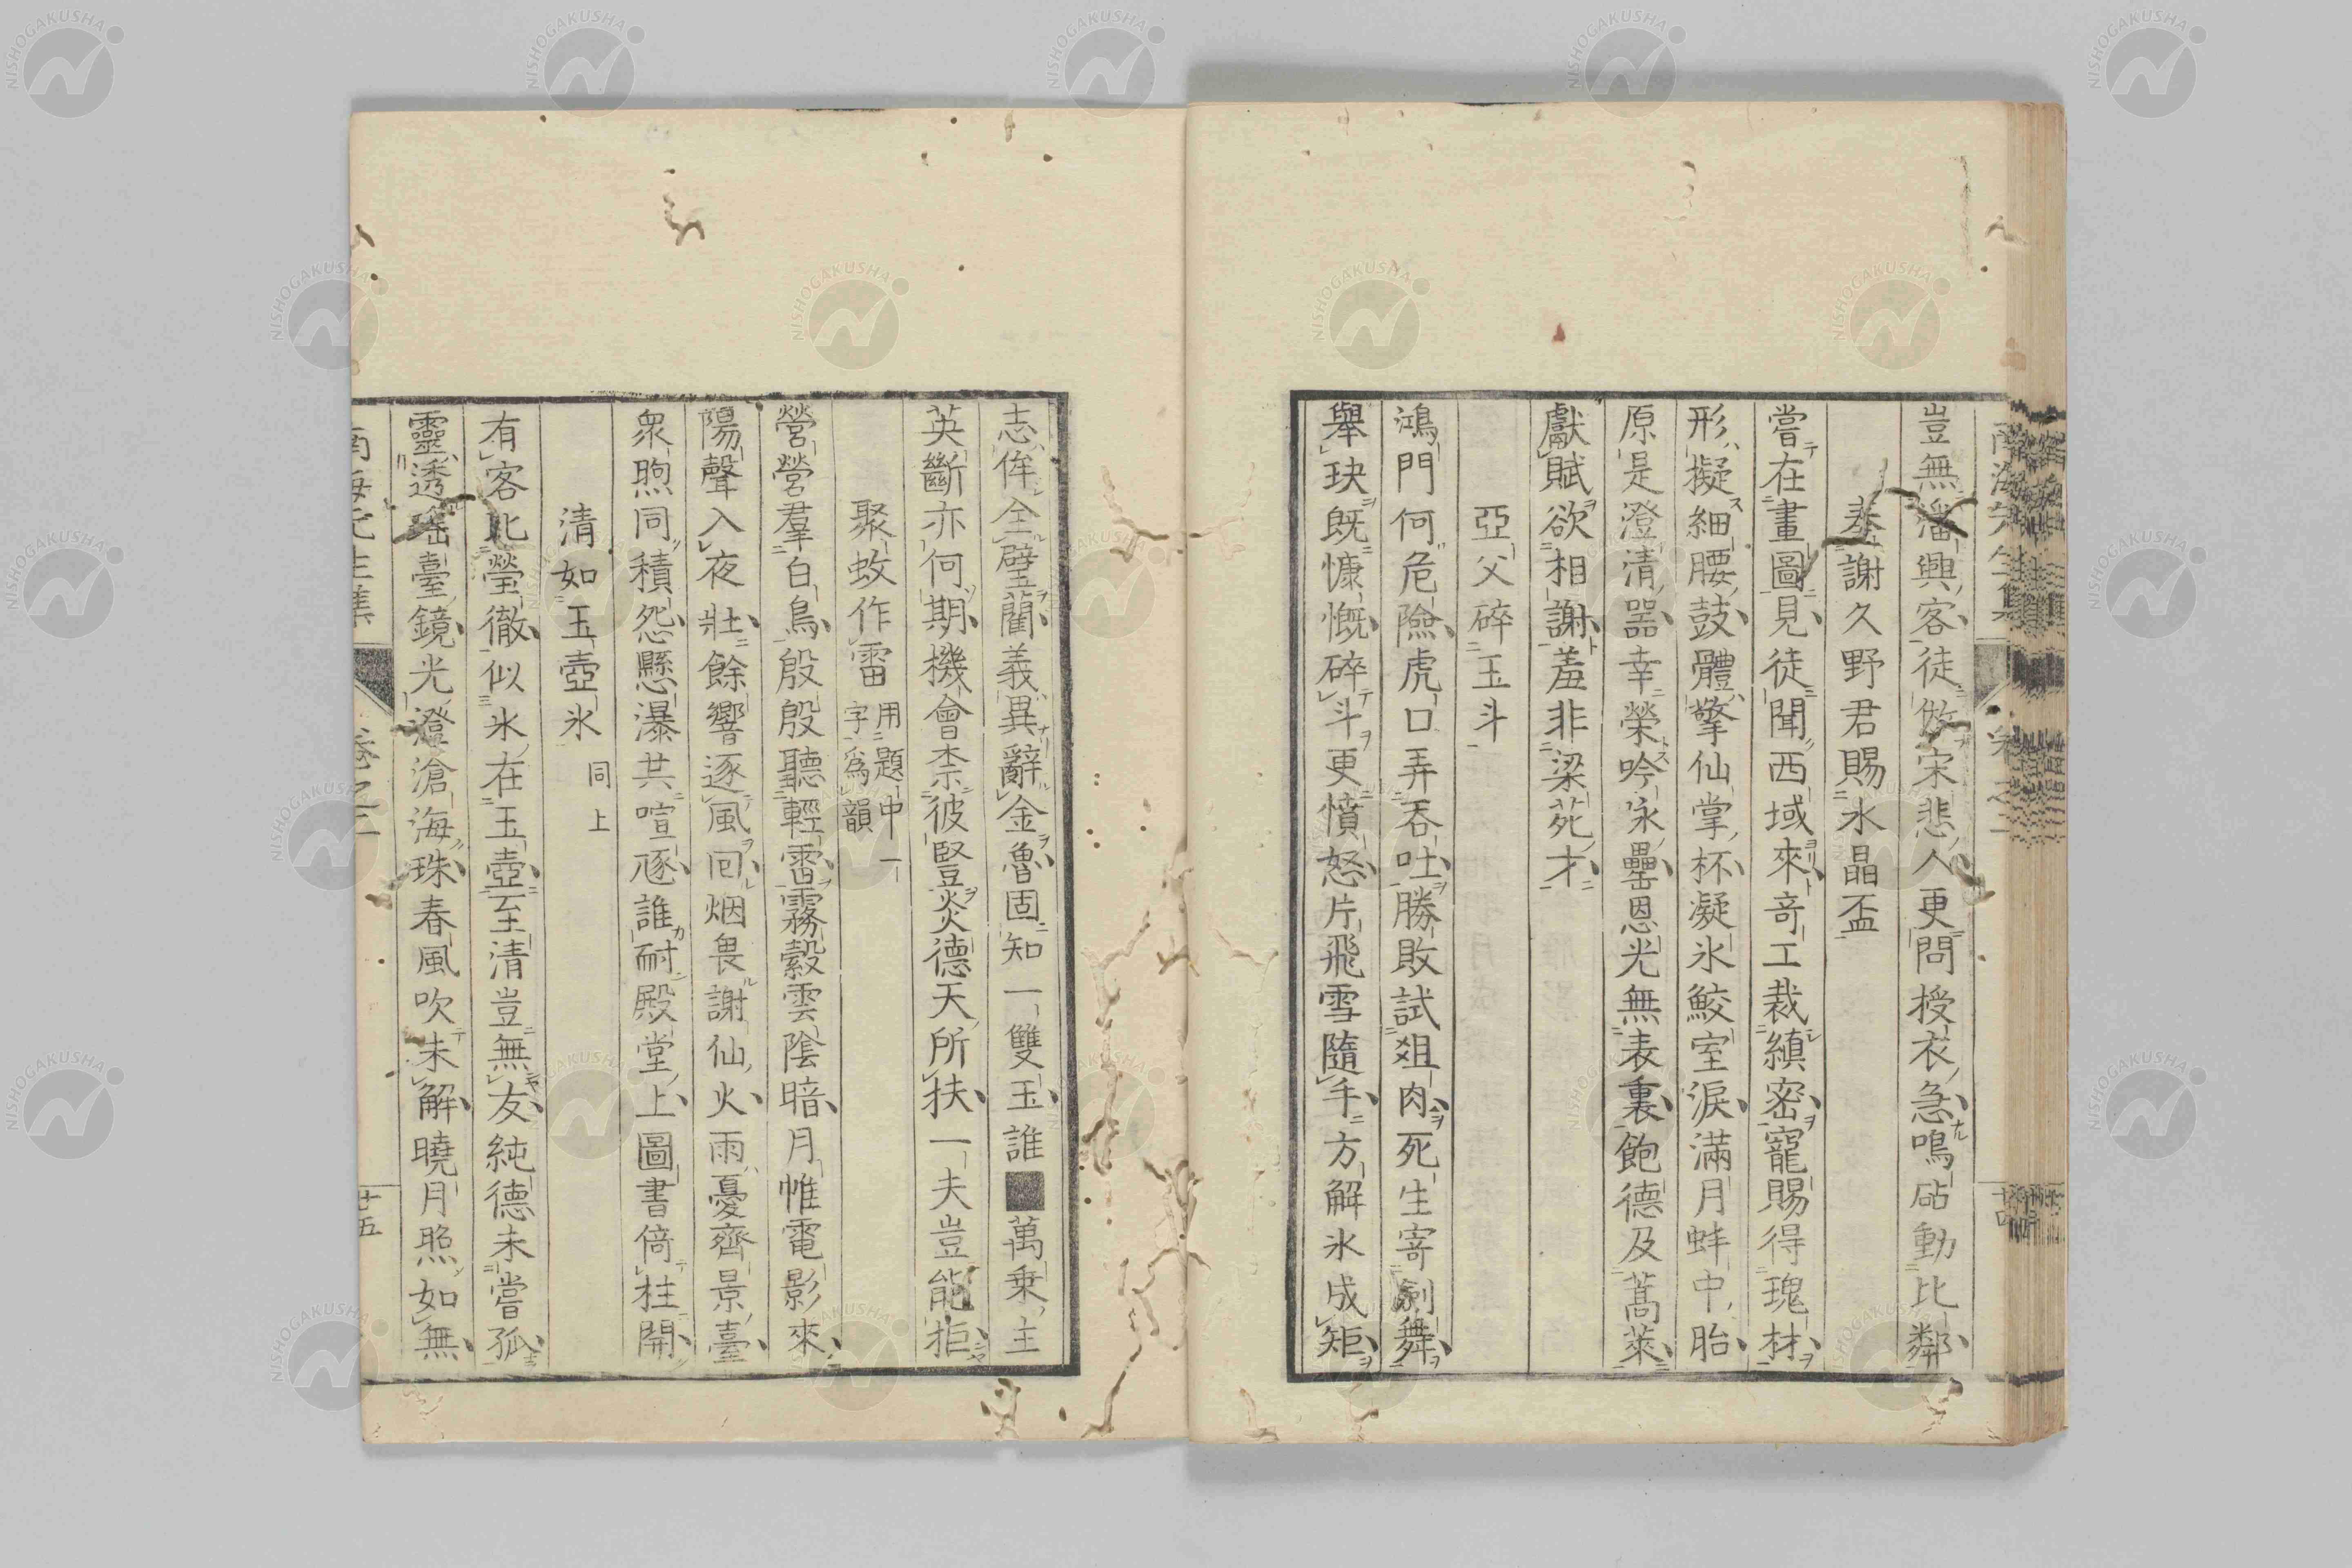 豈無潘興客徒倣宋悲人更問授衣急鳴砧動比鄰
奉謝久野君賜氷晶盃
嘗在畫圖見徒聞西域來奇工裁縝密寵賜得瑰材
形擬細腰鼓體擎仙掌杯凝氷鮫室淚滿月蚌中胎
原是澄清器幸榮吟咏罍恩光無表裏飽德及蒿萊
獻賦欲相謝羞非梁苑才
亞父碎玉斗
鴻門何危險虎口弄吞吐勝敗試俎肉死生寄劍舞
舉玦既慷慨碎斗更憤怒片飛雪隨手方解氷成矩
志侔全璧藺義異辭金魯固知一雙玉誰■萬乗主
英斷亦何期機會柰彼豎炎德天所扶一夫豈能拒
聚蚊作雷 用題中一字爲韻
營營羣白鳥殷殷聽輕雷霧縠雲陰暗月帷電影來
陽聲入夜壯餘響逐風回烟畏謝仙火雨憂齊景臺
衆煦同積怨懸瀑共喧豗誰耐殿堂上圖書倚柱開
清如玉壺氷 同上
有客比瑩徹似氷在玉壺至清豈無友純德未嘗孤
靈透瑶臺鏡光澄滄海珠春風吹未解曉月照如無
卷之二
廿五
NISHOGAKUSHA